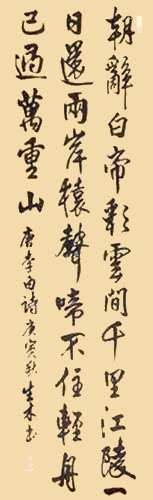 朝辭白帝彩雲間千里江陵一
日還兩岸猿聲啼不住輕舟
已過萬重山
唐李白詩庚寅秋生木书